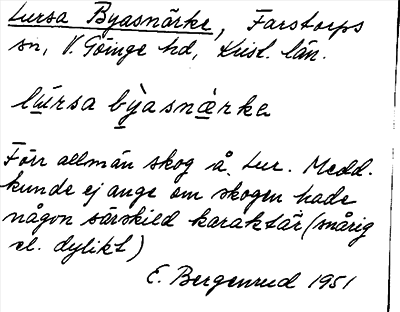 Lursa Byasnärke, Farstorps
sn, V. Göinge hd, Krist. län.
lúrsa bỳasnæ̀rka
Förr allmän skog å Lur. Medd.
kunde ej ange om skogen hade
någon särskild karaktär (snårig
el. dylikt)
E. Bergenrud 1951